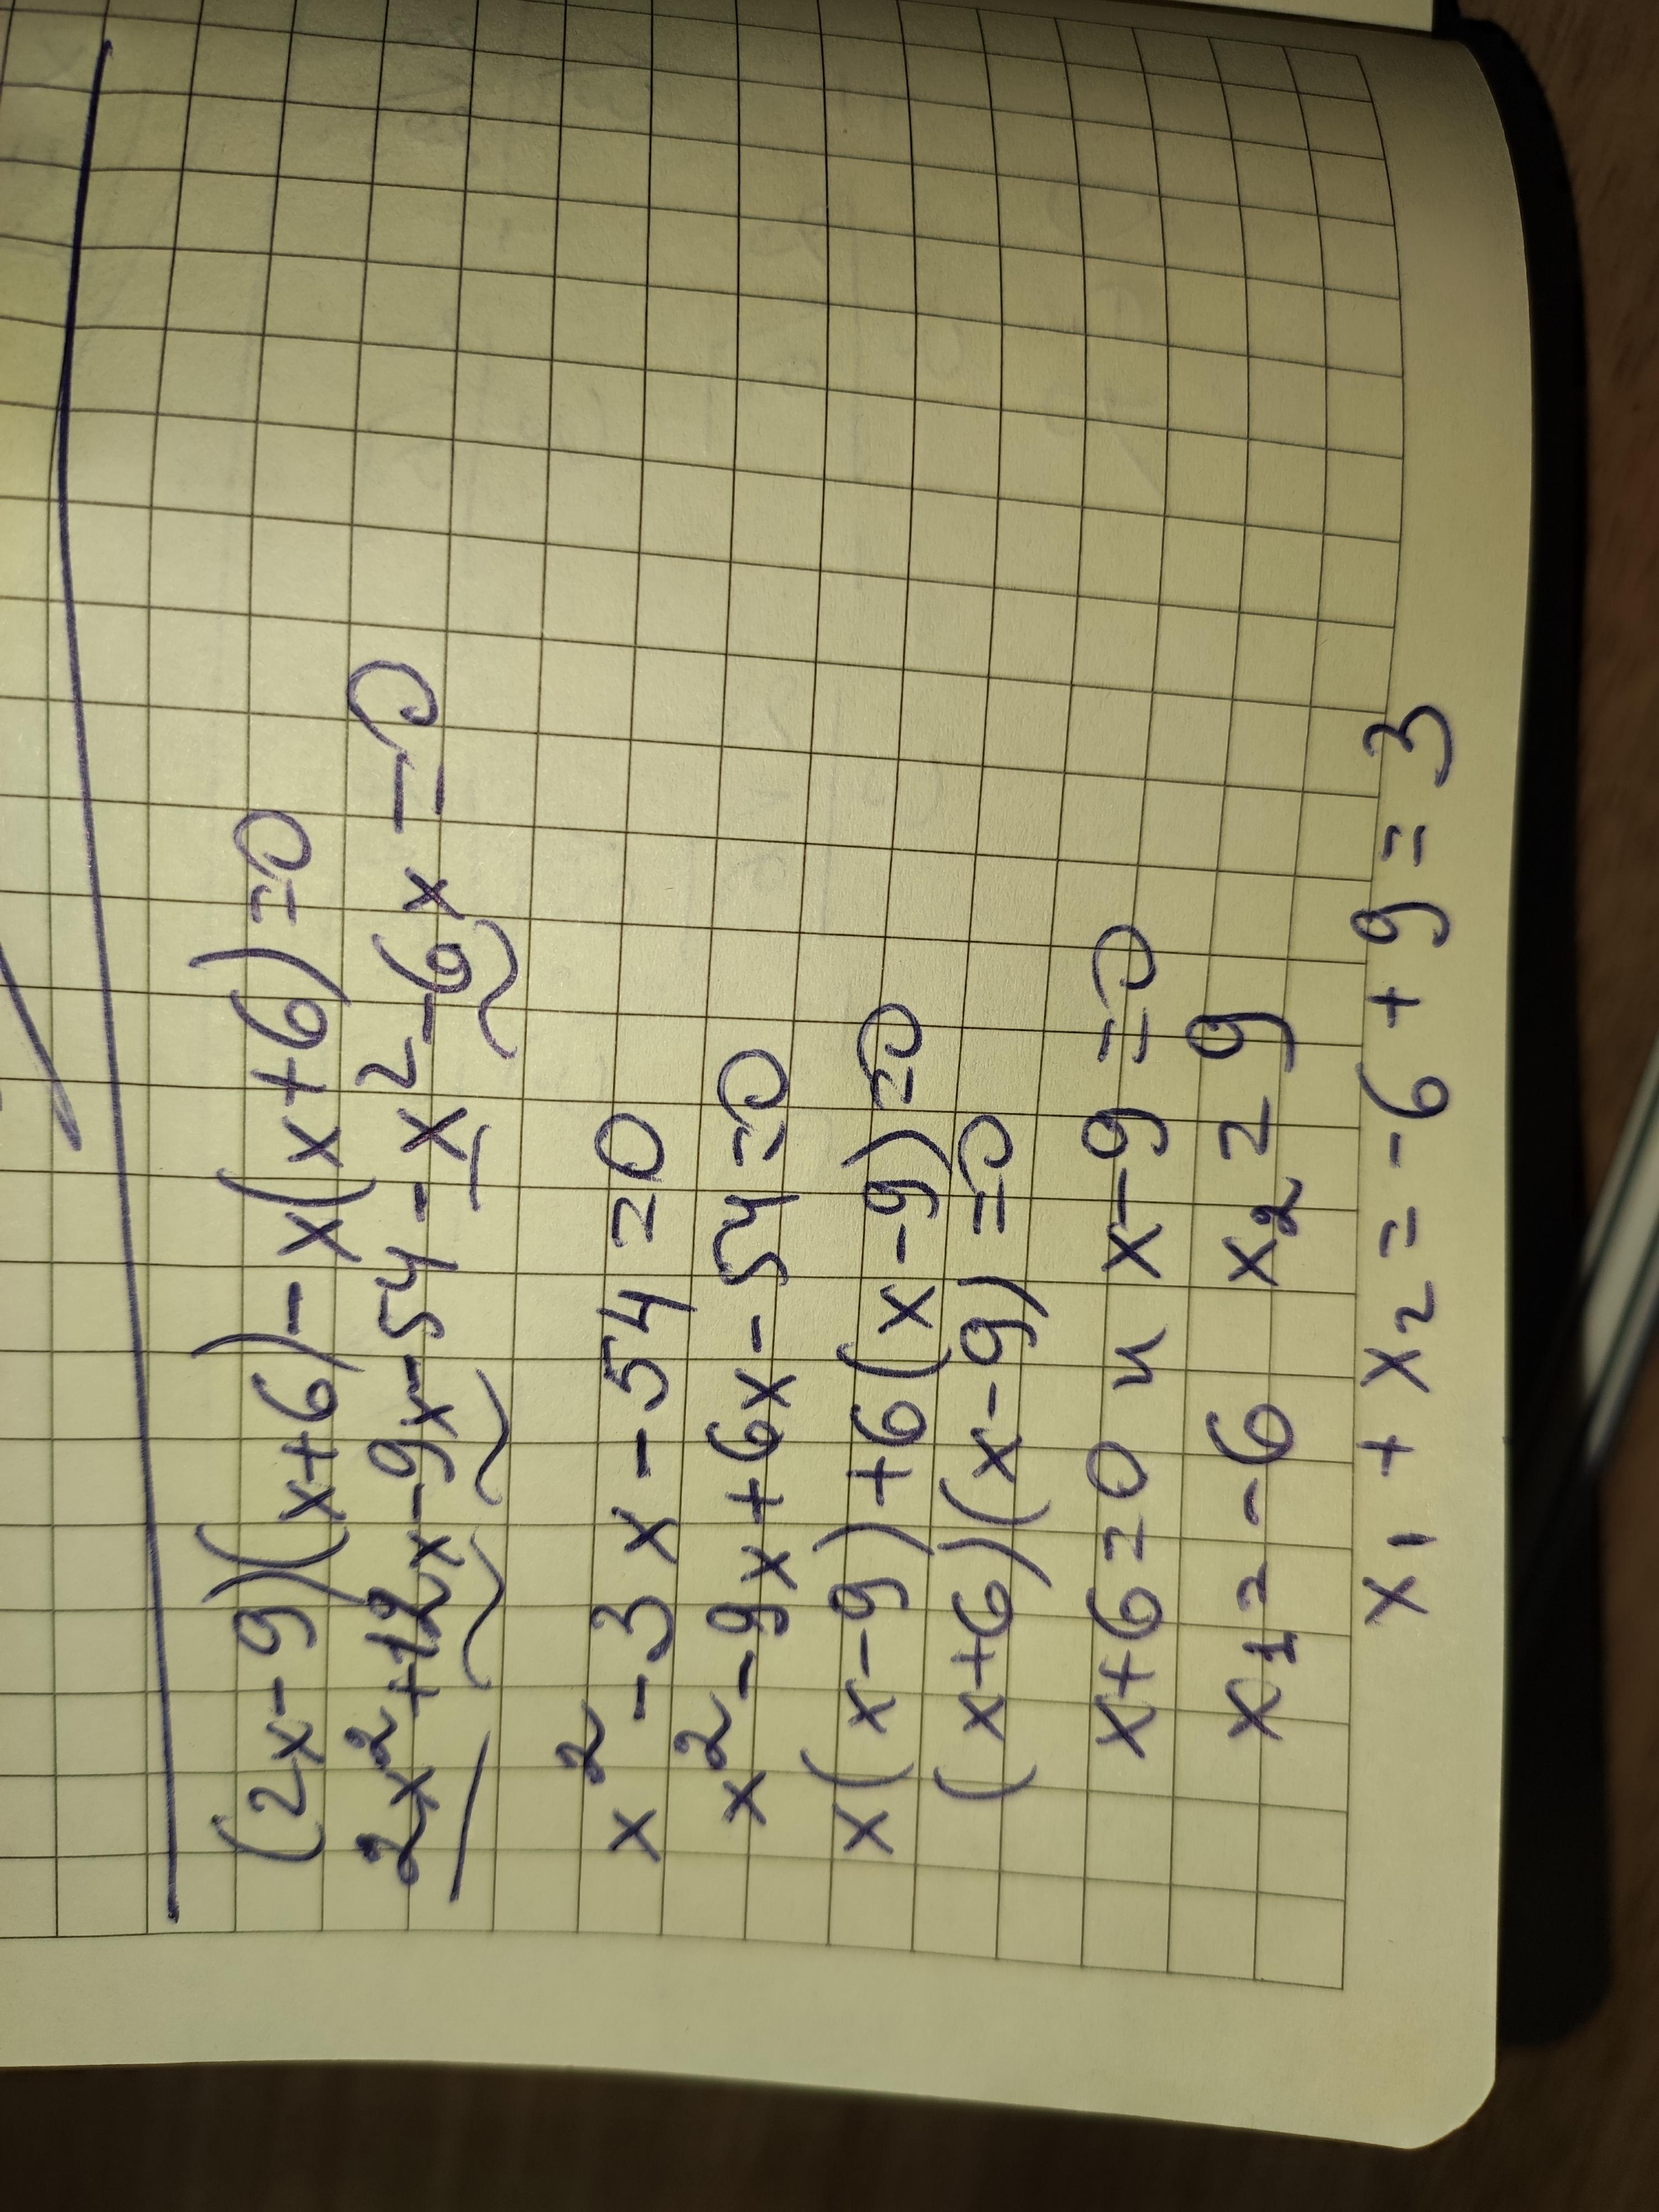 (2x-9)(x+6)-x(x+6)=0
2x²+12x-9x-54-x²-6x=0
x²-3x-54=0
x²-9x+6x-54=0
x(x-9)+6(x-9)=0
(x+6)(x-9)=0
x+6=0 и x-9=0
x₁=-6 x₂=9
x₁+x₂=-6+9=3